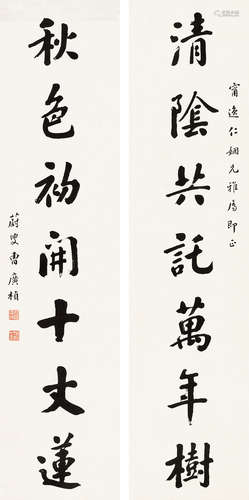 甯逸仁姻兄雅屬即正
清陰共託萬年樹
秋色初開十丈蓮
蔚叟曹廣楨